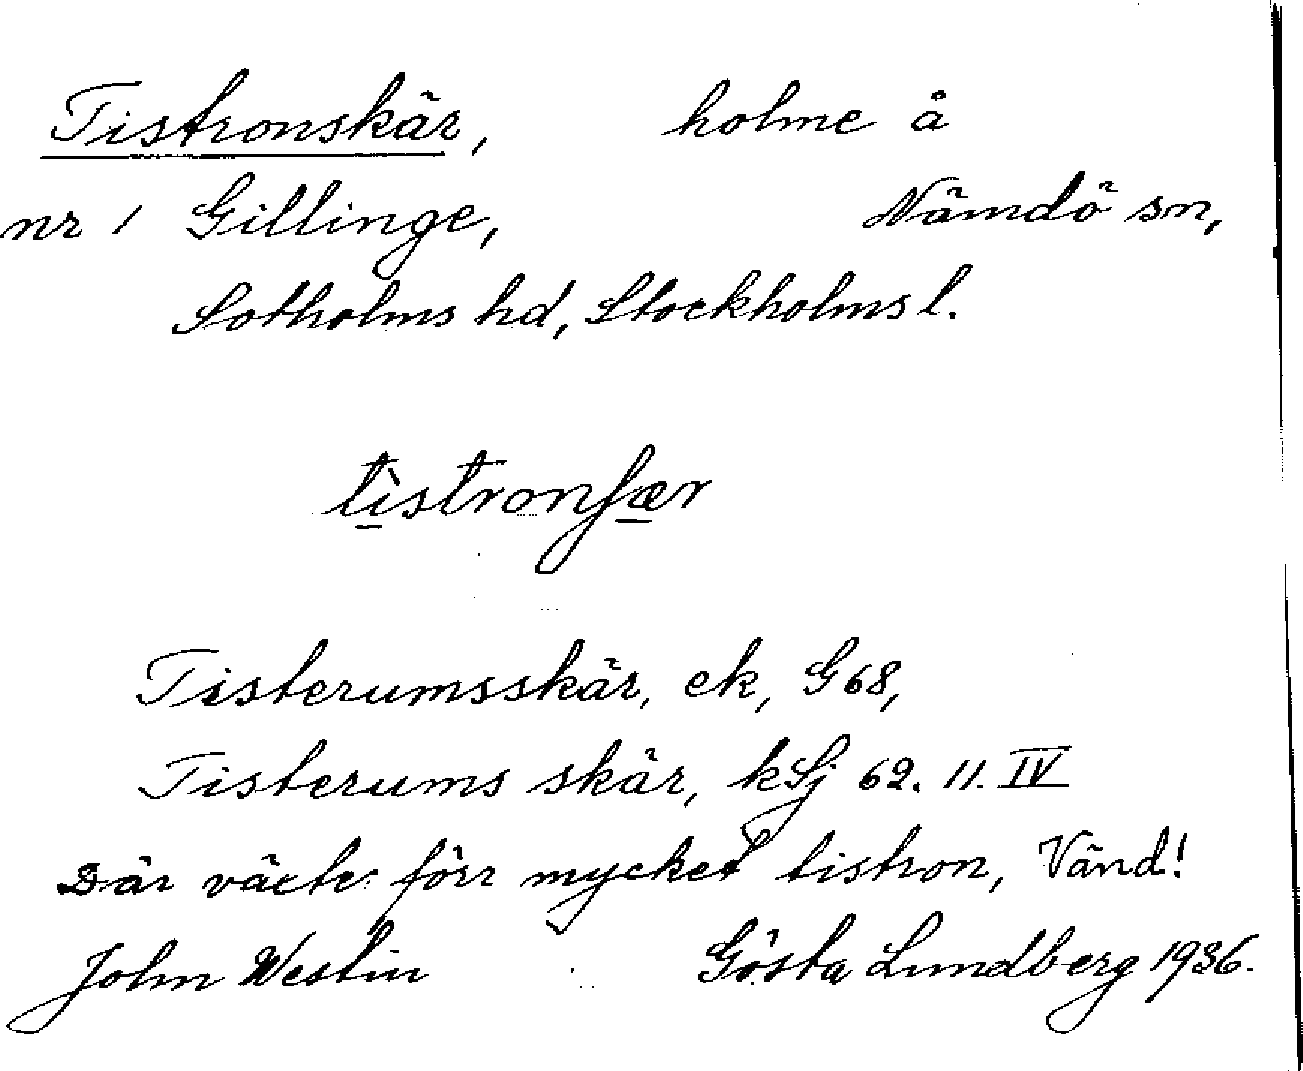 Tistronskär, holme å
nr 1 Gillinge, Nämdö sn,
Sotholms hd, Stockholms l.
tìstronʃær
Tisterumsskär, ek, G 68,
Tisterums skär, kSj 62. 11. IV
Där växte förr mycket tistron, Vänd!
John Westin Gösta Lundberg 1936.